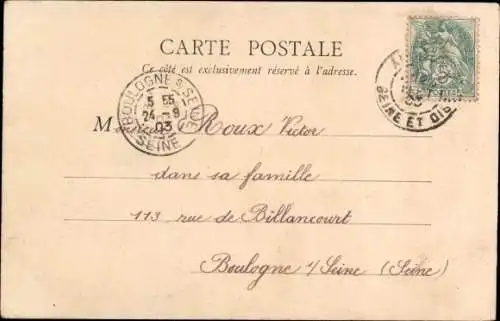 CARTE POSTALE
Ce côté est exclusivement réservé à l'adresse.
BOULOGNE S SEINE
5 55
24 9
03
SEINE
SEINE ET OISE
Monsieur Roux Victor
dans sa famille
113 rue de Billancourt
Boulogne s/ Seine (Seine)